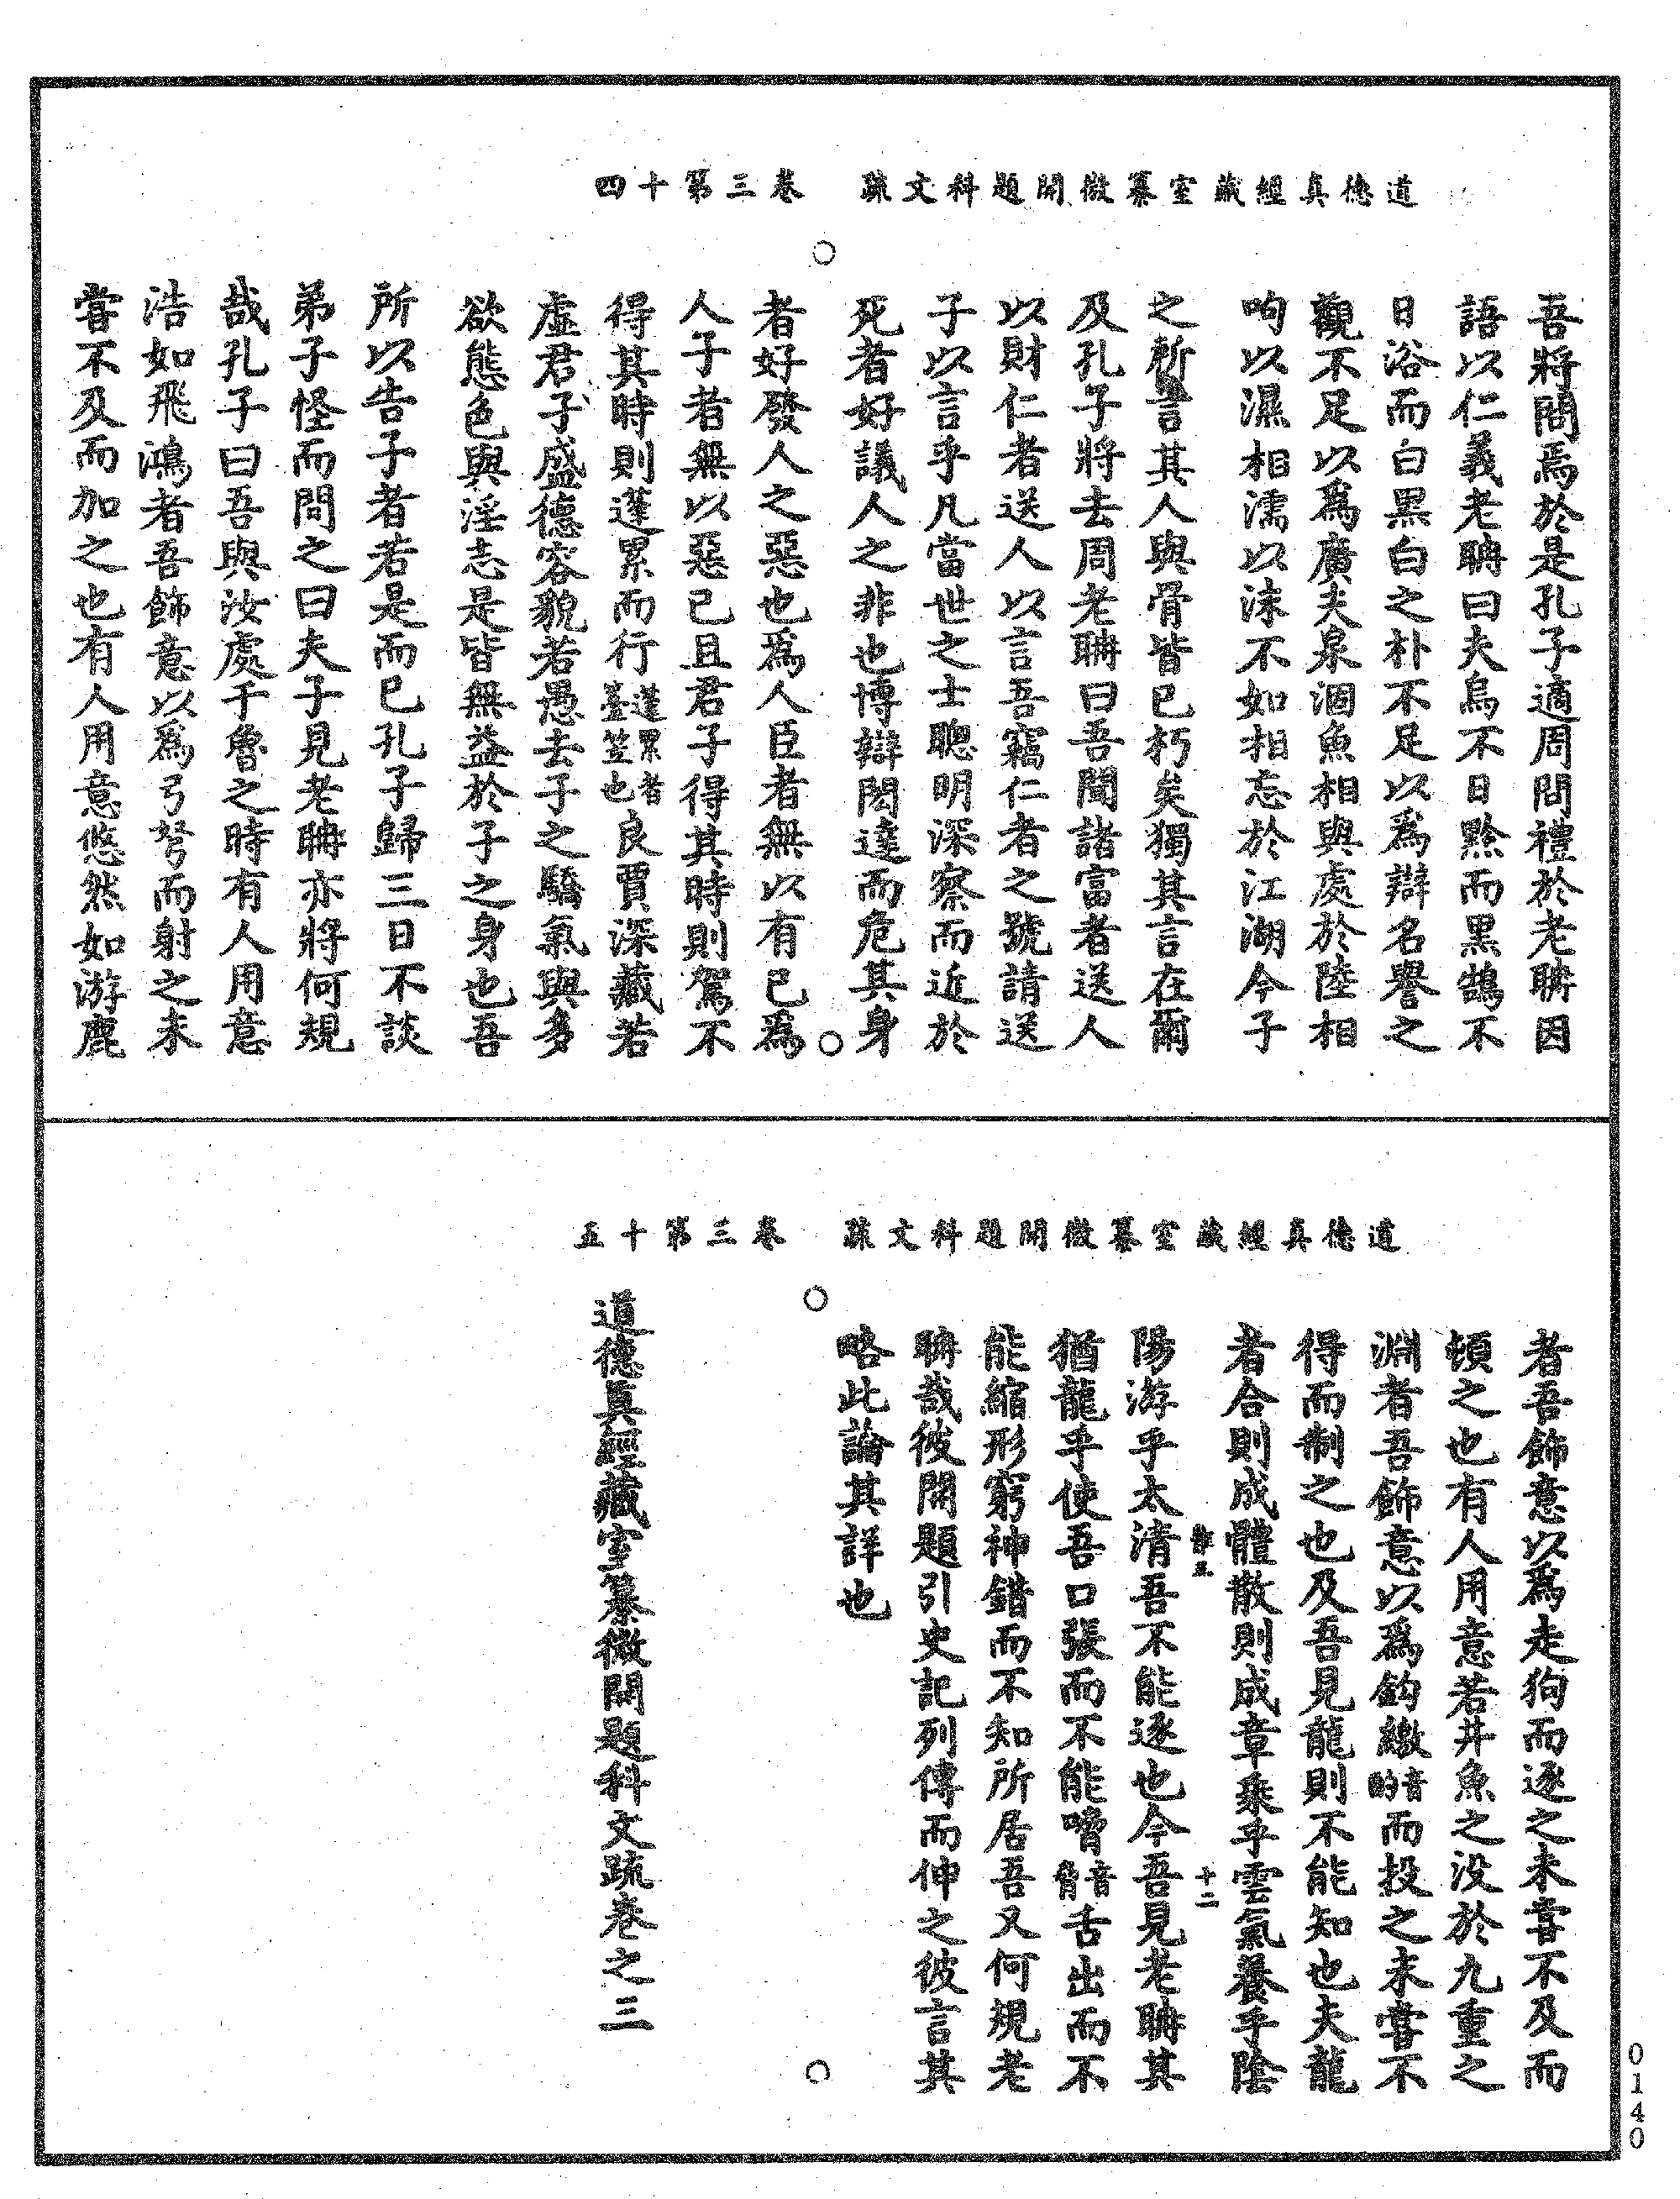 道德真經藏室纂微開題科文疏　卷三第十四
吾將問焉於是孔子適周問禮於老聃因
語以仁義老聃曰夫烏不日黔而黑鵠不
日浴而白黑白之朴不足以爲辯名譽之
觀不足以爲廣夫泉涸魚相與處於陸相
呴以濕相濡以沫不如相忘於江湖今子
之所言其人與骨皆已朽矣獨其言在爾
及孔子將去周老聃曰吾聞諸富者送人
以財仁者送人以言吾竊仁者之號請送
子以言乎凡當世之士聰明深察而近於
死者好議人之非也博辯閎達而危其身
者好發人之惡也爲人臣者無以有己爲
人子者無以惡己且君子得其時則駕不
得其時則蓬累而行蓬累者䔲笠也良賈深藏若
虛君子盛德容貌若愚去子之驕氣與多
欲態色與淫志是皆無益於子之身也吾
所以告子者若是而已孔子歸三日不談
弟子怪而問之曰夫子見老聃亦將何規
哉孔子曰吾與汝處于魯之時有人用意
浩如飛鴻者吾飾意以爲弓弩而射之未
嘗不及而加之也有人用意悠然如游鹿
道德真經藏室纂微開題科文疏　卷三第十五
者吾飾意以爲走狗而逐之未嘗不及而
頓之也有人用意若井魚之没於九重之
淵者吾飾意以爲鈎繳音酌而投之未嘗不
得而制之也及吾見龍則不能知也夫龍
者合則成體散則成章乘乎雲氣養乎陰
十二
陽游乎太清吾不能逐也今吾見老聃其
猶龍乎使吾口張而不能噏音脅舌出而不
能縮形窮神錯而不知所居吾又何規老
聃哉彼開題引史記列傳而伸之彼言其
略此論其詳也
道德真經藏室纂微開題科文疏卷之三
0140